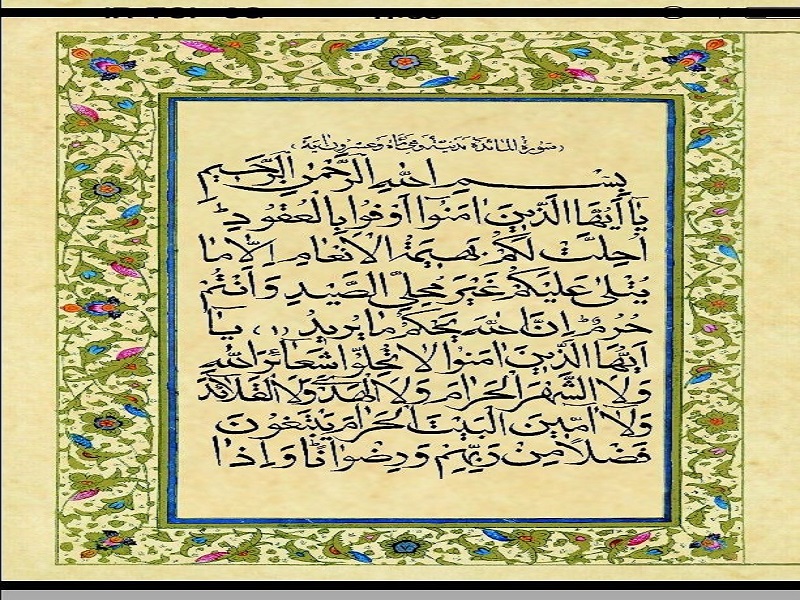 (سورة المائدة مدنية وهي مائة وعشرون اية)
بسم الله الرحمن الرحيم
يا أيها الذين امنوا اوفوا بالعقود ط
احلت لكم بهيمة الانعام الا ما
يتلى عليكم غير محلي الصيد وانتم
حرم ط ان الله يحكم ما يريد (١) يا
ايها الذين امنوا لا تحلوا شعائر الله
ولا الشهر الحرام ولا الهدي ولا القلائد
ولا امين البيت الحرام يبتغون
فضلا من ربهم ورضوانا ط واذا